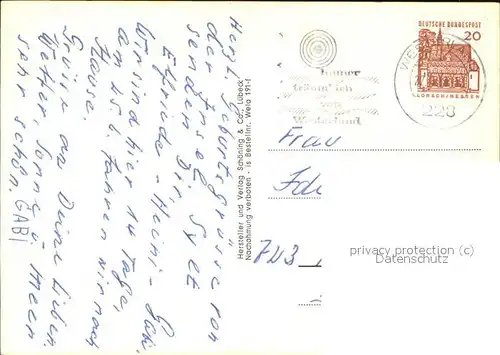 Herzl. Geburtsgrüsse von
der Insel Sylt
senden Dir
Elfriede - Heini - Gabi.
Wir sind hier 14 Tage,
am 25.6. fahren wir nach
Hause.
Grüsse an Deine Lieben.
Wetter, Sonne u. Meer
sehr schön. GABI
Hersteller und Verlag Schöning & Co., Lübeck
Nachahmung verboten - is Bestellnr. Weia 191-f
immer
träum' ich
von
Westerland
DEUTSCHE BUNDESPOST
20
LORSCH/HESSEN
228
Frau
743
privacy protection (c)
Datenschutz